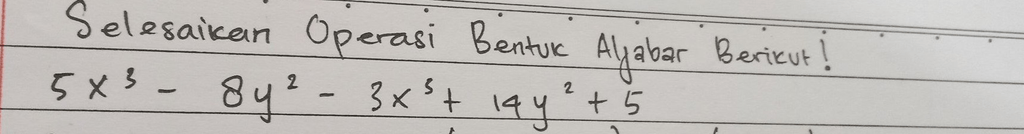 Selesaikan Operasi Bentuk Aljabar Berikut!
5x³ - 8y² - 3x³ + 14y² + 5